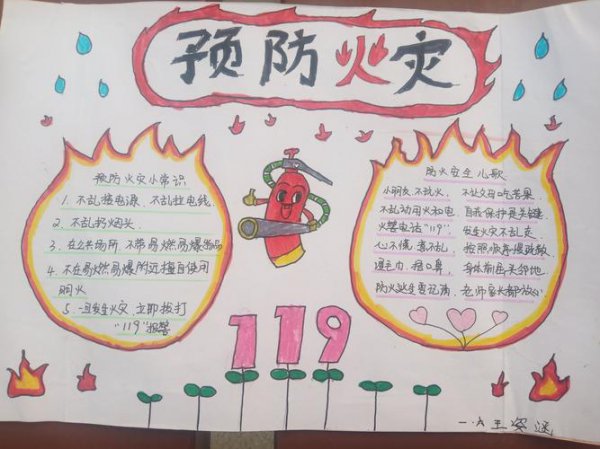 预防火灾
预防火灾小常识
1. 不乱接电源、不乱拉电线
2. 不乱扔烟头
3. 在公共场所、不带易燃易爆物品
4. 不在易燃易爆附近擅自使用
明火
5. 一旦发生火灾、立即拨打
“119”报警
119
防火安全儿歌
小朋友、不玩火、不让父母吃苦果、
不乱动用火和电、自我保护是关键、
火警电话“119”、发生火灾不乱走、
心不慌、意不乱、按照顺序慢疏散、
湿毛巾、捂口鼻、身体前屈头部地、
防火逃生要记清、老师家长都放心
一.六王